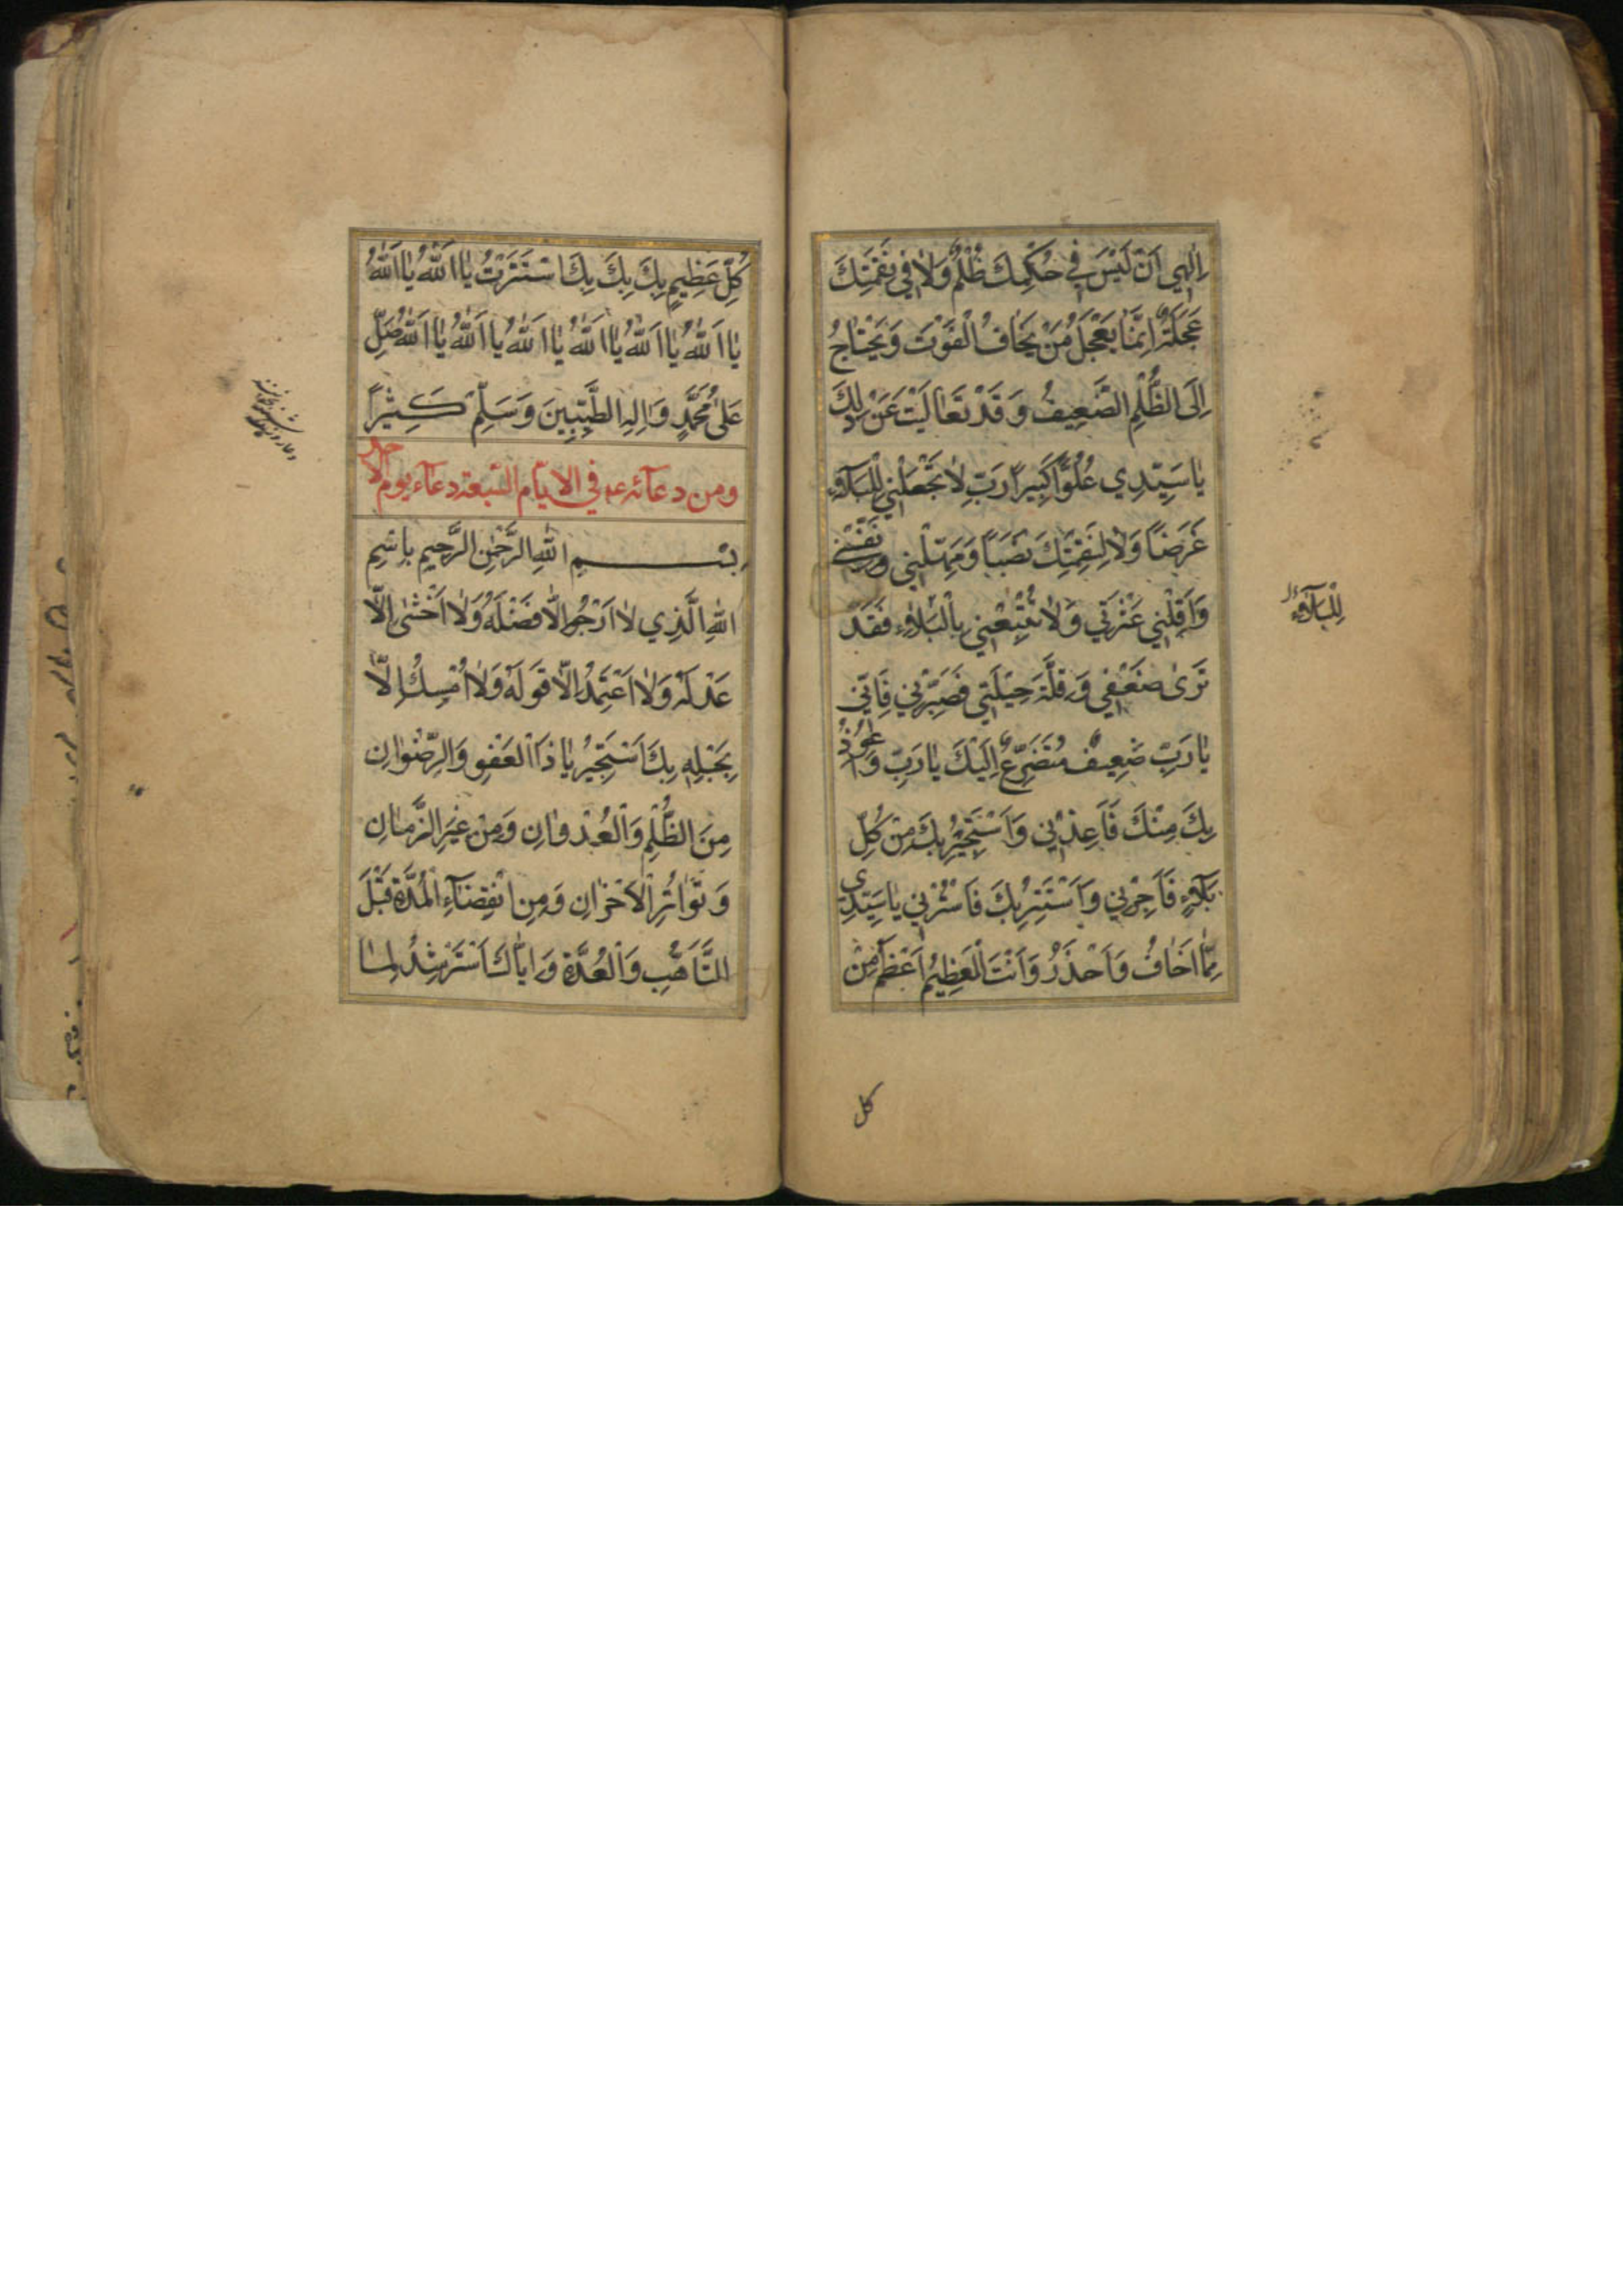 اِلٰهِي اَنْ لَيْسَ فِي حُكْمِكَ ظُلْمٌ وَلاٰ فِي نَقِمَتِكَ
عَجَلَةٌ اِنَّمٰا يَعْجَلُ مَنْ يَخٰافُ الْفَوْتَ وَيَحْتٰاجُ
اِلَى الظُّلْمِ الضَّعِيفُ وَقَدْ تَعٰالَيْتَ عَنْ ذٰلِكَ
يٰا سَيِّدِي عُلُوًّا كَبِيراً رَبِّ لاٰ تَجْعَلْنِي لِلْبَلآءِ
غَرَضاً وَلاٰ لِنَقِمَتِكَ نَصَباً وَمَهِّلْنِي وَنَفِّسْنِي
وَاَقِلْنِي عَثْرَتِي وَلاٰ تُتْبِعْنِي بِالْبَلاٰءِ فَقَدْ
تَرىٰ ضَعْفِي وَقِلَّةَ حِيلَتِي فَصَبِّرْنِي فَاِنِّي
يٰا رَبِّ ضَعِيفٌ مُتَضَرِّعٌ اِلَيْكَ يٰا رَبِّ وَاَعُوذُ
بِكَ مِنْكَ فَاَعِذْنِي وَاَسْتَجِيرُ بِكَ مِنْ كُلِّ
بَلآءٍ فَاَجِرْنِي وَاَسْتَتِرُ بِكَ فَاسْتُرْنِي يٰا سَيِّدِي
مِمّٰا اَخٰافُ وَاَحْذَرُ وَاَنْتَ الْعَظِيمُ اَعْظَمُ مِنْ
لِلْبَلآءِ
كل
كُلِّ عَظِيمٍ بِكَ بِكَ بِكَ اسْتَتَرْتُ يٰا اَللّٰهُ يٰا اَللّٰهُ
يٰا اَللّٰهُ يٰا اَللّٰهُ يٰا اَللّٰهُ يٰا اَللّٰهُ يٰا اَللّٰهُ يٰا اَللّٰهُ صَلِّ
عَلىٰ مُحَمَّدٍ وَاٰلِهِ الطَّيِّبِينَ وَسَلِّمْ كَثِيراً
ومن دعآئه ع في الايّام السّبعة دعآء يوم الاحد
بِسْمِ اللّٰهِ الرَّحْمٰنِ الرَّحِيمِ بِاسْمِ
اللّٰهِ الَّذِي لاٰ اَرْجُو اِلاّٰ فَضْلَهُ وَلاٰ اَخْشىٰ اِلاّٰ
عَدْلَهُ وَلاٰ اَعْتَمِدُ اِلاّٰ قَوْلَهُ وَلاٰ اُمْسِكُ اِلاّٰ
بِحَبْلِهِ بِكَ اَسْتَجِيرُ يٰا ذَا الْعَفْوِ وَالرِّضْوٰانِ
مِنَ الظُّلْمِ وَالْعُدْوٰانِ وَمِنْ غِيَرِ الزَّمٰانِ
وَتَوٰاتُرِ الْاَحْزٰانِ وَمِنِ انْقِضٰآءِ الْمُدَّةِ قَبْلَ
التَّاَهُّبِ وَالْعُدَّةِ وَاِيّٰاكَ اَسْتَرْشِدُ لِمٰا